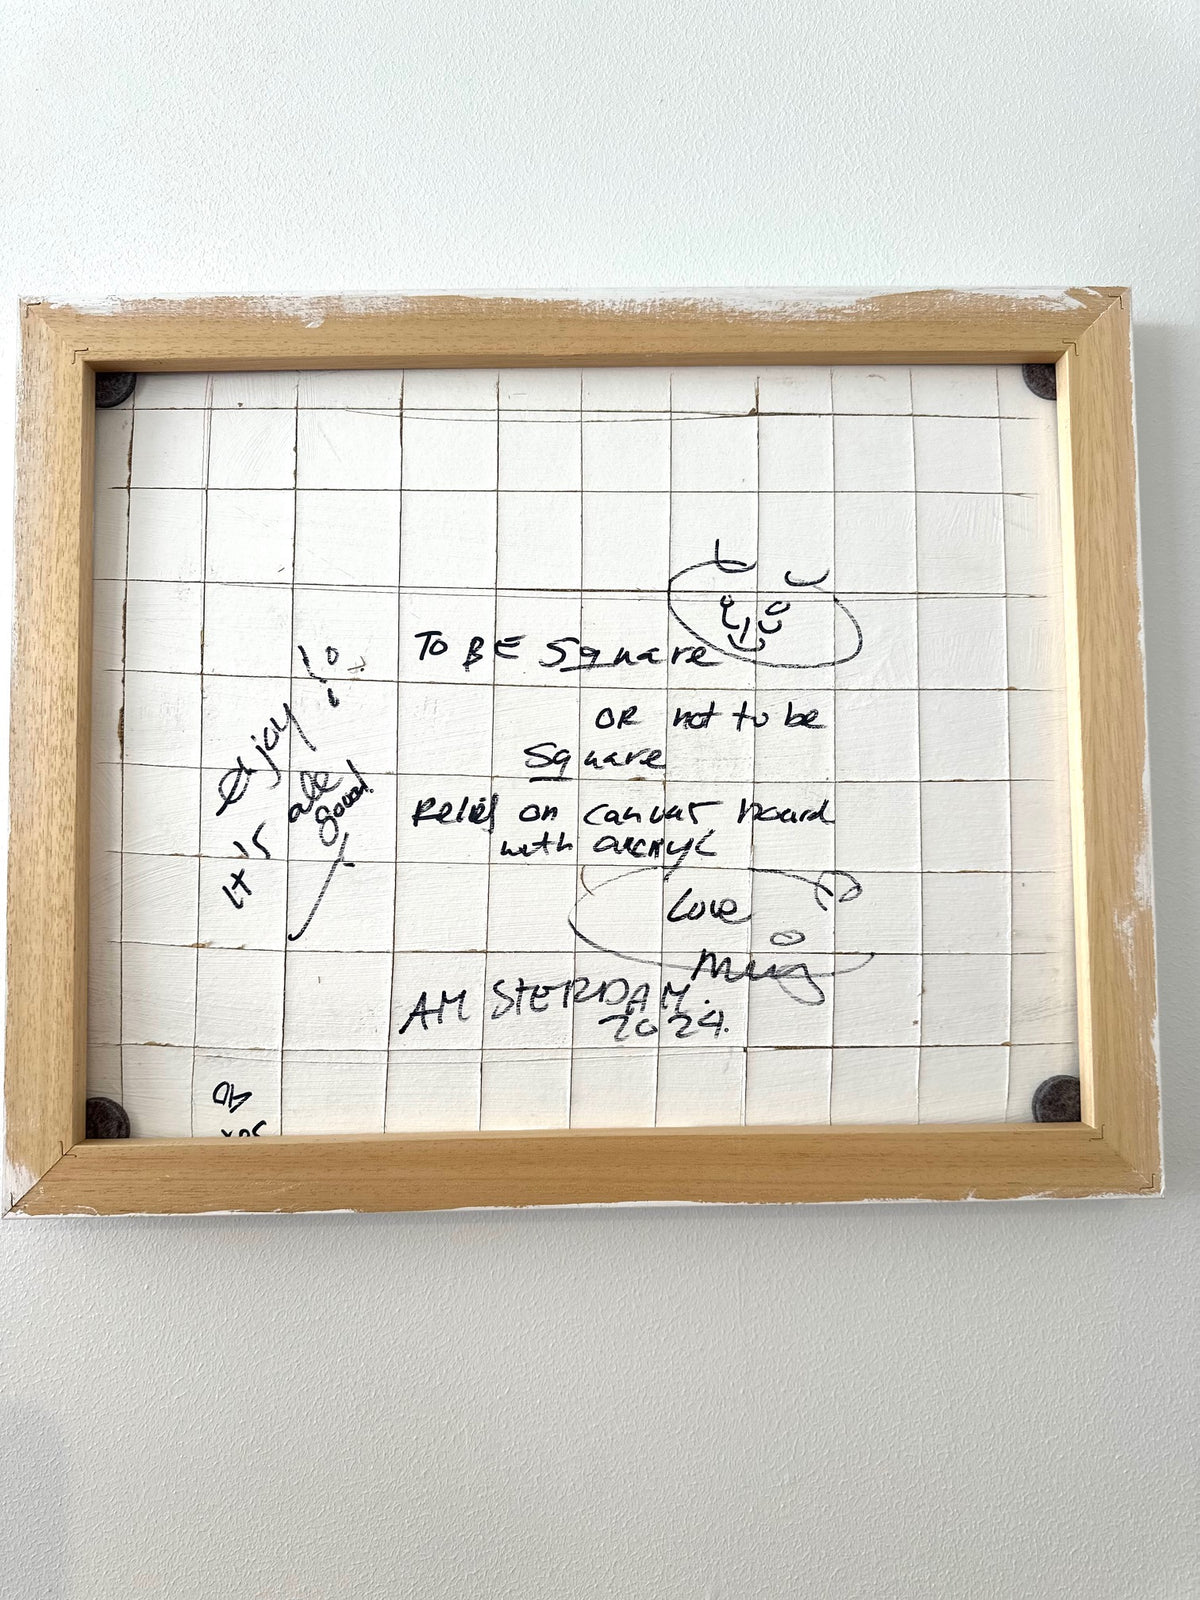 TO BE Square
OR not to be
Square
Relief on canvas board
with acryl
Love
AMSTERDAM.
2024.
enjoy!
it is all
good!